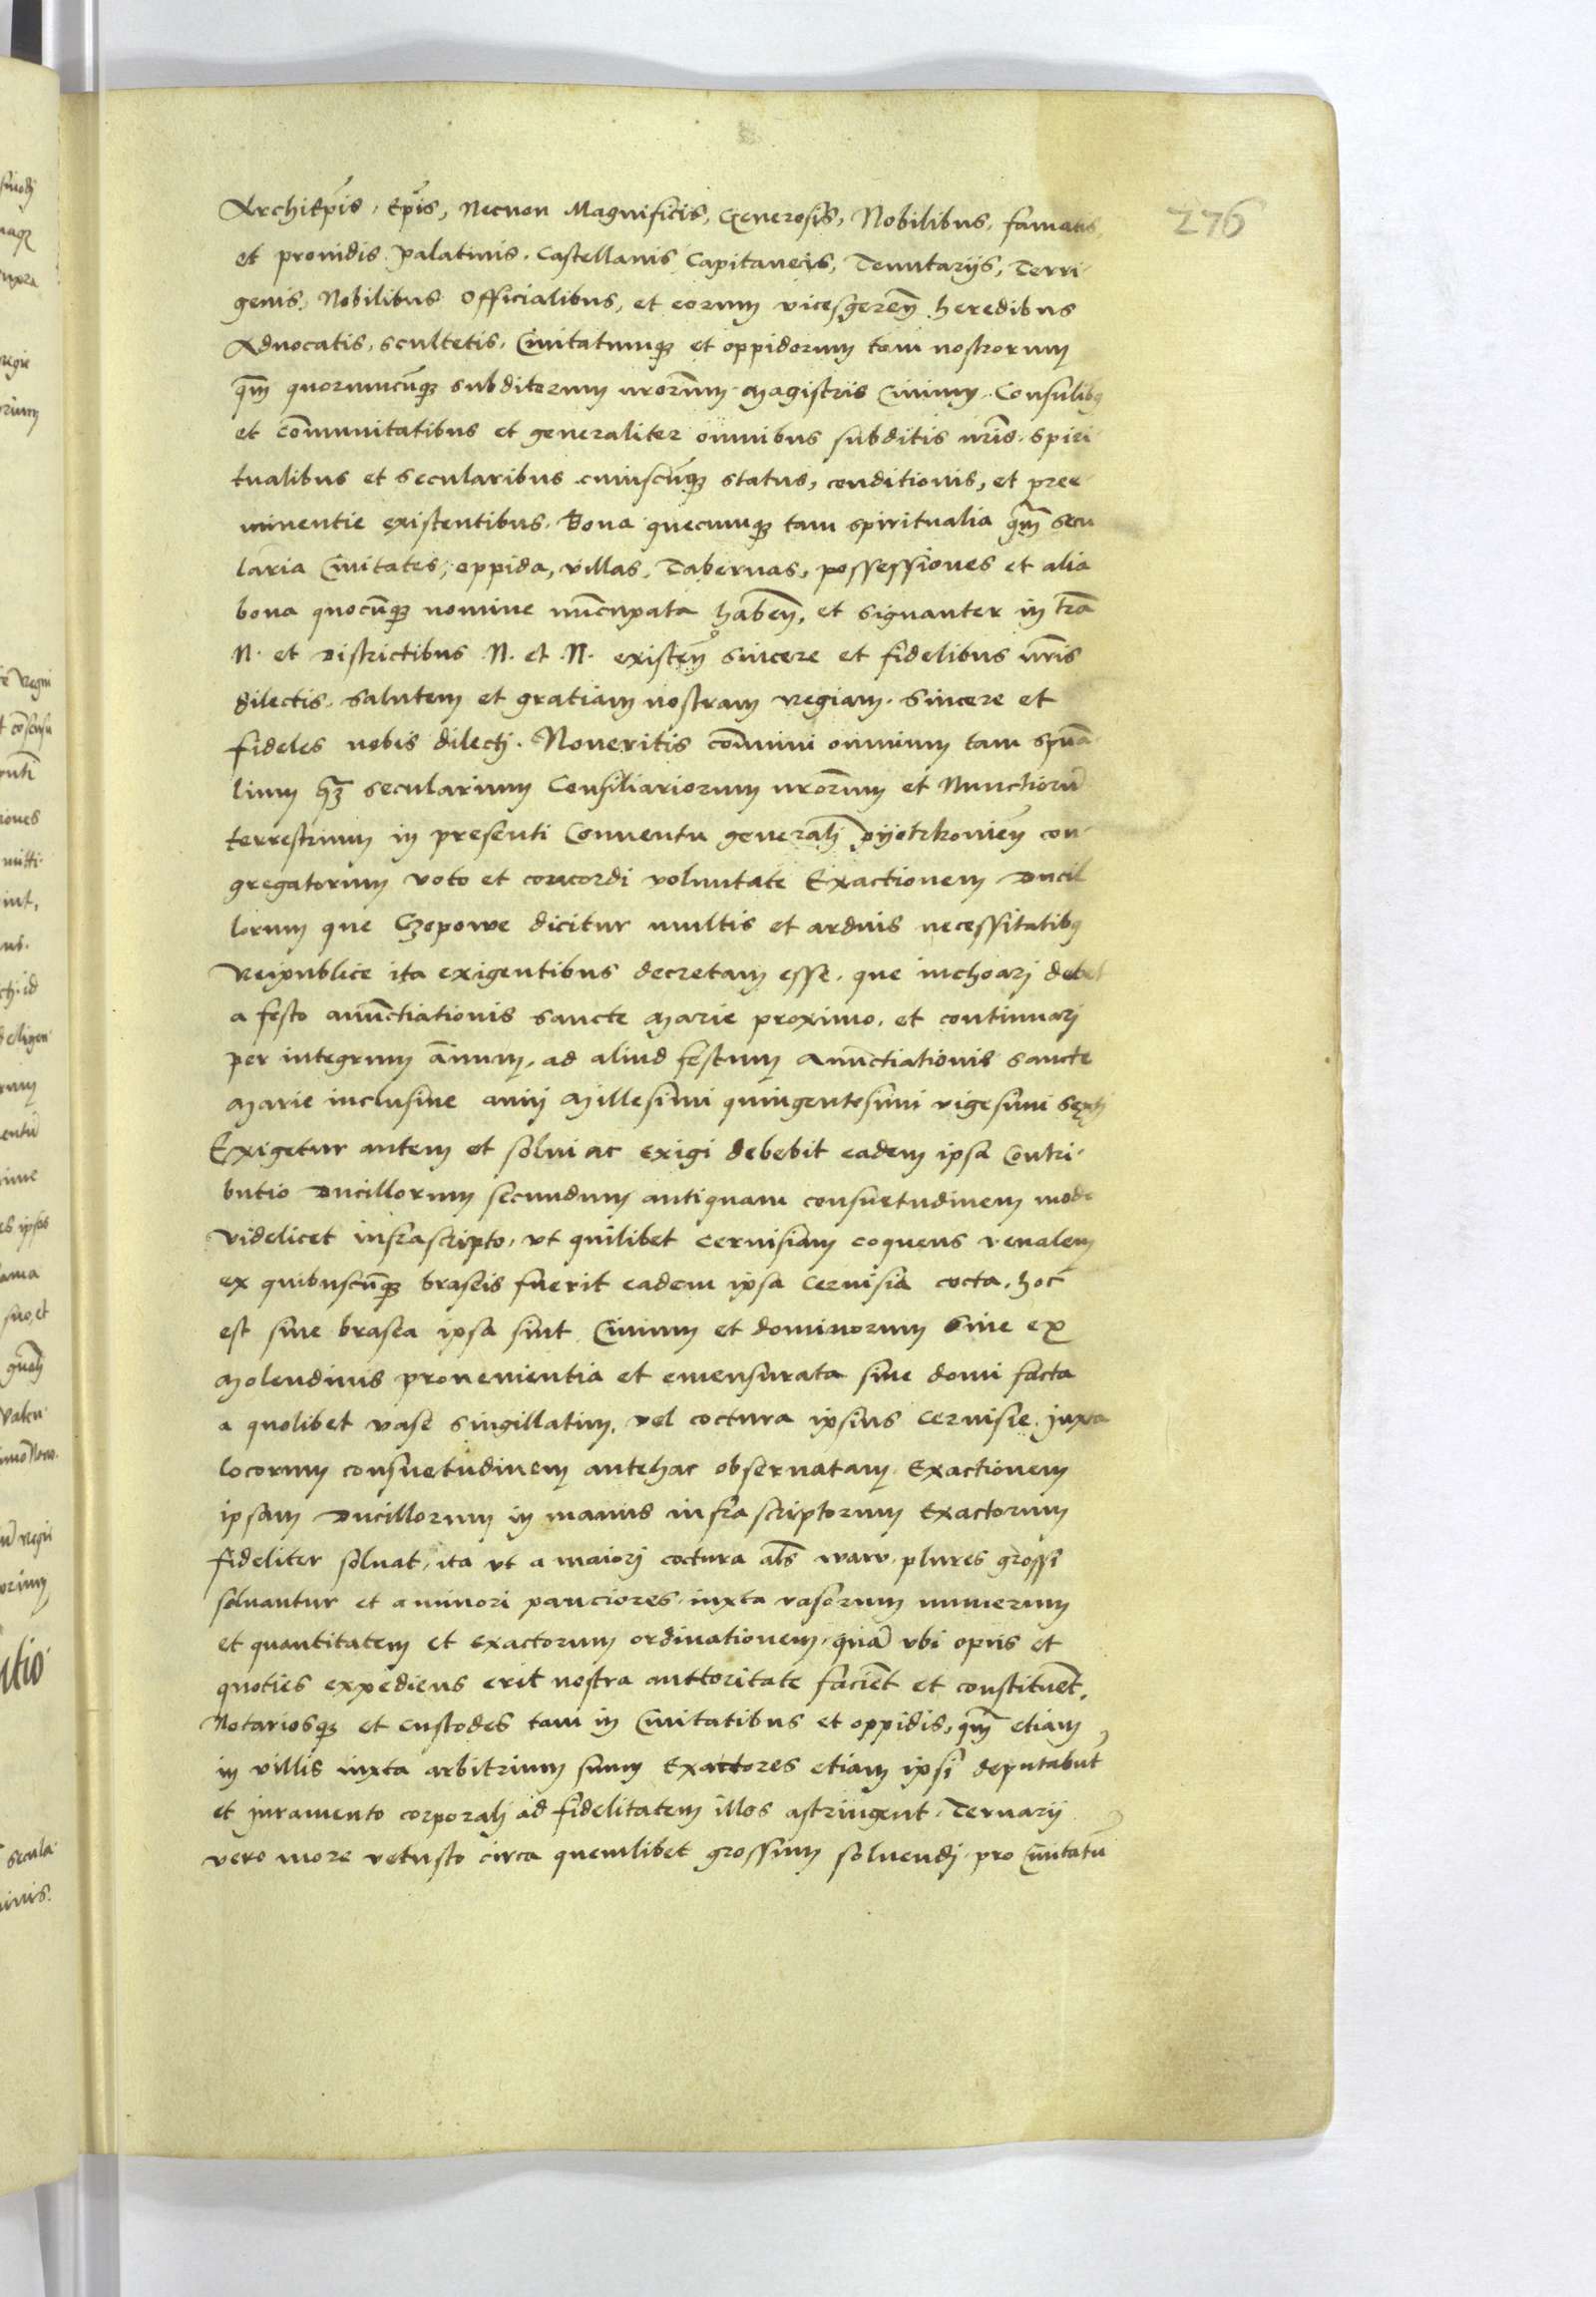 276
Archiep̃is, Ep̃is, Necnon Magnificis, Generosis, Nobilibus, famatis,
et prouidis, Palatinis, Castellanis Capitaneis, Tenutarijs, Terri-
genis, Nobilibus Officialibus, et eorum vicesgereñ heredibus
Aduocatis, scultetis, Ciuitatumq; et oppidorum tam nostrorum
q̃m quorumcũq; subditorum nrorũm magistris Ciuium, Consulibq
et com̃unitatibus et generaliter omnibus subditis nr̃is, spiri
tualibus et secularibus cuiuscũq; status, conditionis, et pree-
minentie existentibus. Bona quecumq; tam spiritualia q̃m secu
laria Ciuitates, oppida, villas, Tabernas, possessiones et alia
bona quocũq; nomine nũcupata habeñ, et signanter in trã
N. et Districtibus .N. et .N. existeñ sincere et fidelibus nr̃is
dilectis, salutem et gratiam nostram regiam. Sincere et
fideles nobis dilectj. Noueritis com̃uni omnium tam spũa
lium q̃z secularium Consiliariorum nrorũm et Nunctiorũ
terrestrium in presenti Conuentu generalj pyotrkouieñ con-
gregatorum voto et concordi voluntate Exactionem Ducil
lorum que Czopowe dicitur multis et arduis necessitatibq
Reipublice ita exigentibus decretam esse, que inchoarj debet
a festo anũctiationis sancte Marie proximo, et continuarj
per integrum an̄um, ad aliud festum Anũctiationis sancte
Marie inclusiue annj Millesimi quingentesimi vigesimi sextj
Exigetur autem et solui ac exigi debebit eadem ipsa Contri-
butio Ducillorum secundum antiquam consuetudinem modo
videlicet infrascripto, vt quilibet ceruisiam coquens venalem
ex quibuscũq; braseis fuerit eadem ipsa ceruisia cocta, hoc
est siue brasea ipsa sint Ciuium et dominorum siue ex
Molendinis prouenientia et emensurata siue domi facta
a quolibet vase singillatim, vel coctura ipsius ceruisie, juxta
locorum consuetudinem antehac obseruatam Exactionem
ipsam Ducillorum in manus infrascriptorum Exactorum
fideliter soluat, ita vt a maiorj coctura als warv plures grossi
soluantur et a minori pauciores iuxta vasorum numerum
et quantitatem et exactorum ordinationem, quã vbi opus et
quoties expediens erit nostra auttoritate faciẽt et constituẽt,
Notariosq; et custodes tam in Ciuitatibus et oppidis, q̃m etiam
in villis iuxta arbitrium suum Exattores etiam ipsi deputabũt
et juramento corporalj ad fidelitatem illos astringent. Ternarij
vero more vetusto circa quemlibet grossum soluendj pro Ciuitatũ